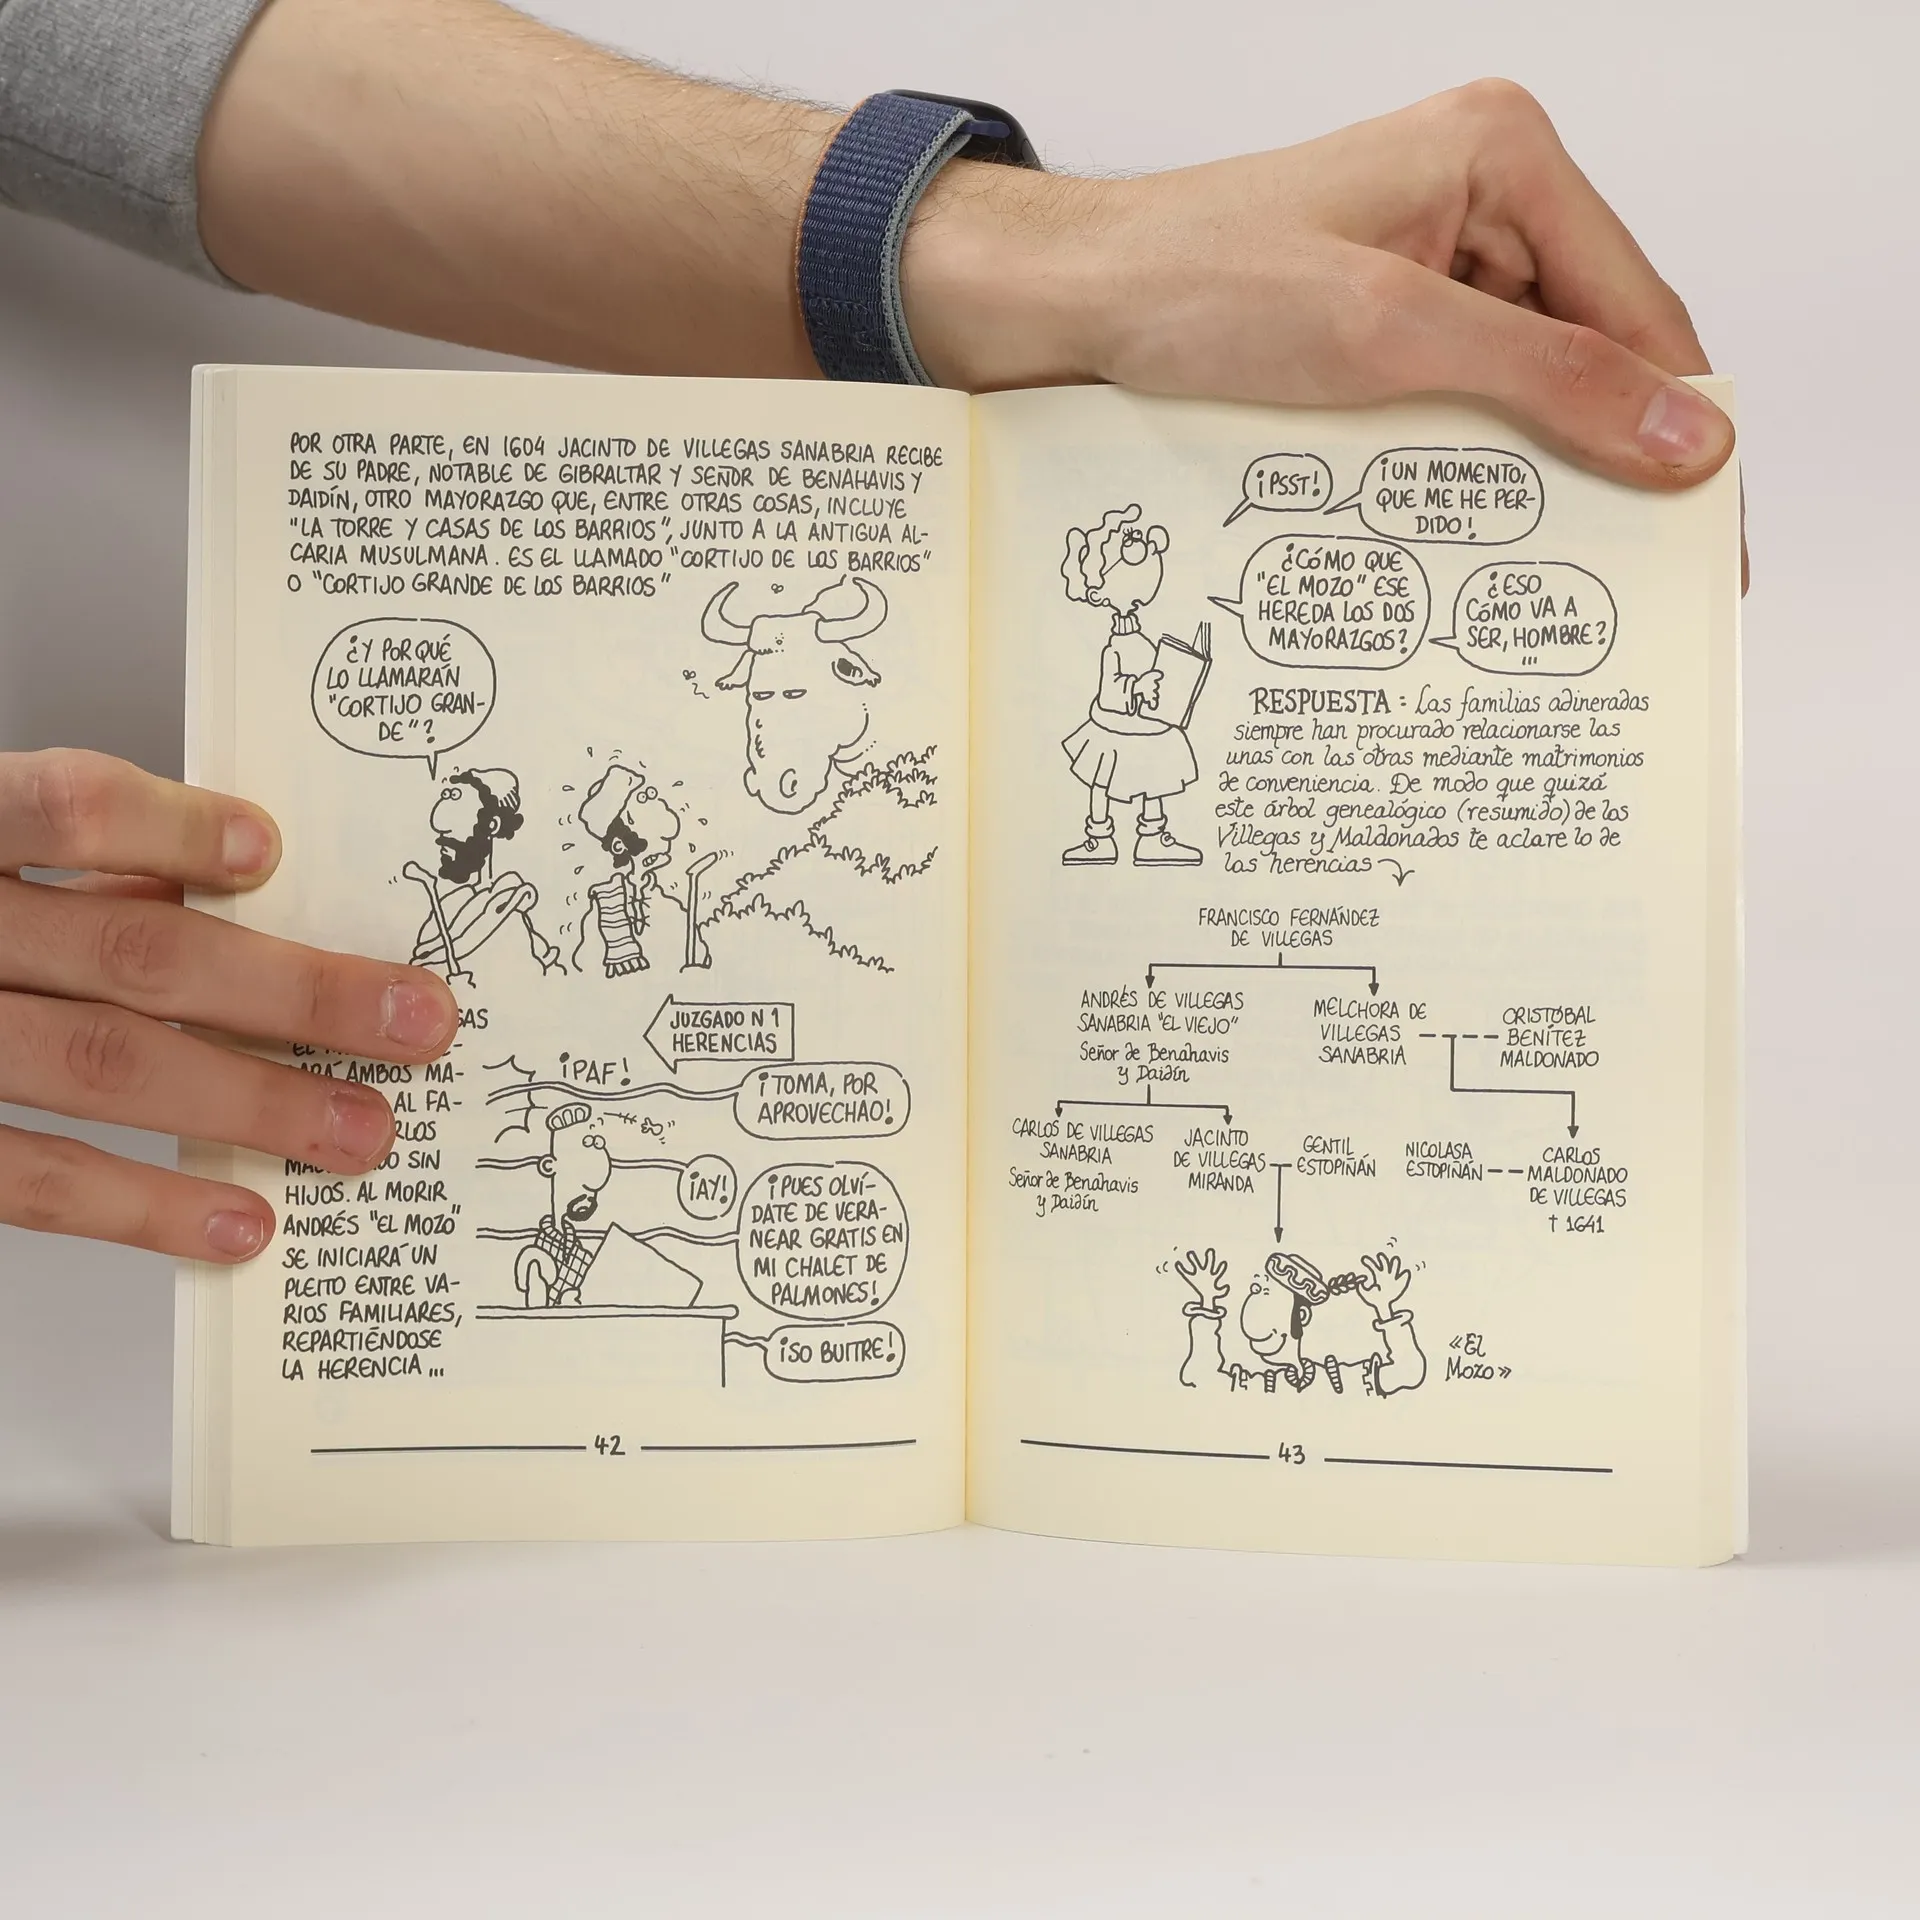 POR OTRA PARTE, EN 1604 JACINTO DE VILLEGAS SANABRIA RECIBE
DE SU PADRE, NOTABLE DE GIBRALTAR Y SEÑOR DE BENAHAVIS Y
DAIDÍN, OTRO MAYORAZGO QUE, ENTRE OTRAS COSAS, INCLUYE
"LA TORRE Y CASAS DE LOS BARRIOS", JUNTO A LA ANTIGUA AL-
CARIA MUSULMANA. ES EL LLAMADO "CORTIJO DE LOS BARRIOS"
O "CORTIJO GRANDE DE LOS BARRIOS"
¿Y POR QUÉ
LO LLAMARÁN
"CORTIJO GRAN-
DE"?
AMBOS MA-
AL FA-
SIN
HIJOS. AL MORIR
ANDRÉS "EL MOZO"
SE INICIARÁ UN
PLEITO ENTRE VA-
RIOS FAMILIARES,
REPARTIÉNDOSE
LA HERENCIA...
JUZGADO N 1
HERENCIAS
¡PAF!
¡TOMA, POR
APROVECHAO!
¡AY!
¡PUES OLVÍ-
DATE DE VERA-
NEAR GRATIS EN
MI CHALET DE
PALMONES!
¡SO BUITRE!
42
¡PSST!
¡UN MOMENTO,
QUE ME HE PER-
DIDO!
¿CÓMO QUE
"EL MOZO" ESE
HEREDA LOS DOS
MAYORAZGOS?
¿ESO
CÓMO VA A
SER, HOMBRE?
...
RESPUESTA: Las familias adineradas
siempre han procurado relacionarse las
unas con las otras mediante matrimonios
de conveniencia. De modo que quizá
este árbol genealógico (resumido) de los
Villegas y Maldonados te aclare lo de
las herencias
FRANCISCO FERNÁNDEZ
DE VILLEGAS
ANDRÉS DE VILLEGAS
SANABRIA "EL VIEJO"
Señor de Benahavis
y Daidín
MELCHORA DE
VILLEGAS
SANABRIA
CRISTÓBAL
BENÍTEZ
MALDONADO
CARLOS DE VILLEGAS
SANABRIA
Señor de Benahavis
y Daidín
JACINTO
DE VILLEGAS
MIRANDA
GENTIL
ESTOPIÑÁN
NICOLASA
ESTOPIÑÁN
CARLOS
MALDONADO
DE VILLEGAS
† 1641
«El
Mozo»
43